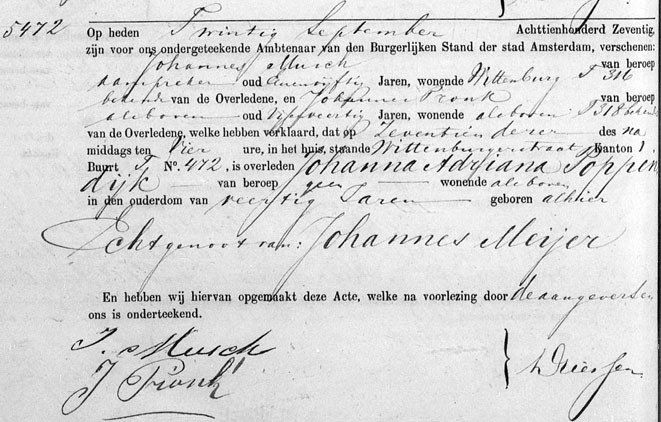 5472
Op heden Twintig September Achttienhonderd Zeventig,
zijn voor ons ondergeteekende Ambtenaar van den Burgerlijken Stand der stad Amsterdam, verschenen:
Johannes Musch van beroep
aanspreker oud Jaren, wonende Wittenburg T 316
bekende van de Overledene, en Johannes Pronk van beroep
als boven oud Vijfveertig Jaren, wonende als boven T 318 bekende
van de Overledene, welke hebben verklaard, dat op Zeventien dezer des na
middags ten Vier ure, in het huis, staande Wittenburgerstraat Kanton 1.
Buurt T No. 472, is overleden Johanna Adriana Poppen
dijk van beroep geen wonende als boven
in den ouderdom van veertig Jaren geboren alhier
Echtgenoot van: Johannes Meijer
En hebben wij hiervan opgemaakt deze Acte, welke na voorlezing door de aangevers en
ons is onderteekend.
J. Musch
J Pronk